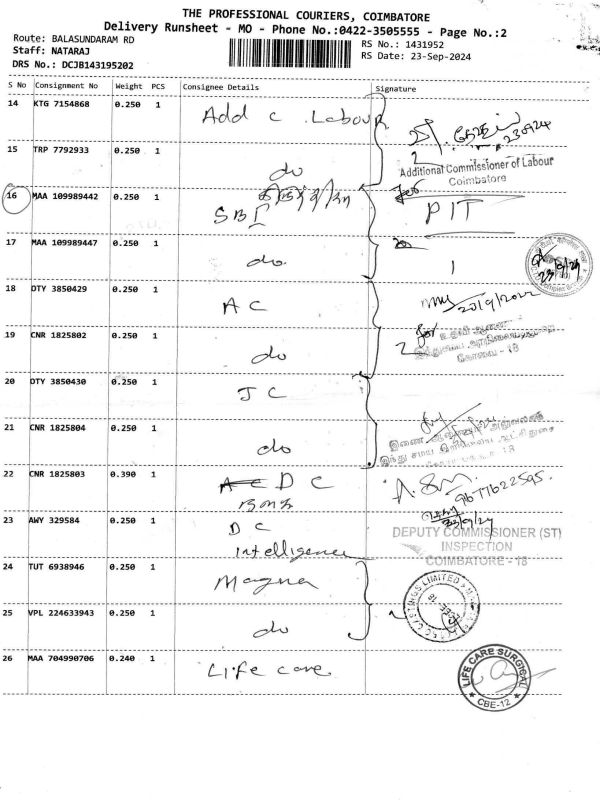 THE PROFESSIONAL COURIERS, COIMBATORE
Delivery Runsheet - MO - Phone No.:0422-3505555 - Page No.:2
Route: BALASUNDARAM RD
RS No.: 1431952
Staff: NATARAJ
RS Date: 23-Sep-2024
DRS No.: DCJB143195202
S No Consignment No Weight PCS Consignee Details Signature
14 KTG 7154868 0.250 1 Add C Labour
23/09/24
15 TRP 7792933 0.250 1 do
Additional Commissioner of Labour
Coimbatore
16 MAA 109989442 0.250 1 SBI
PIT
17 MAA 109989447 0.250 1 do
18 OTY 3850429 0.250 1 AC
19 CNR 1825802 0.250 1 do
கோவை - 18
20 OTY 3850430 0.250 1 JC
21 CNR 1825804 0.250 1 do
22 CNR 1825803 0.390 1 DC
9677622595
23 AWY 329584 0.250 1 DC
Intelligence
23/9/24
DEPUTY COMMISSIONER (ST)
INSPECTION
COIMBATORE - 18
24 TUT 6938946 0.250 1 Magna
25 VPL 224633943 0.250 1 do
CASTINGS LIMITED
26 MAA 704990706 0.240 1 Life care
LIFE CARE SURGICAL
CBE-12